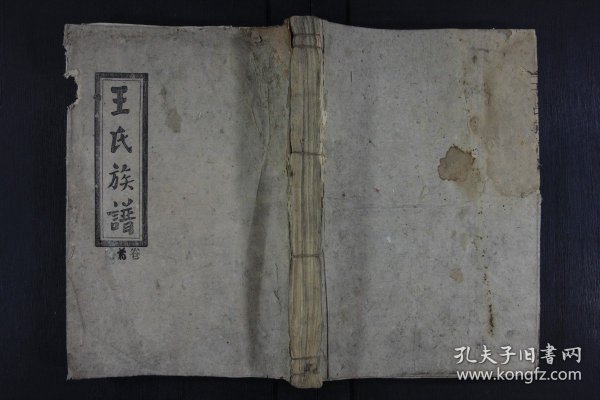 王氏族譜
卷首
孔夫子旧書网
www.kongfz.com